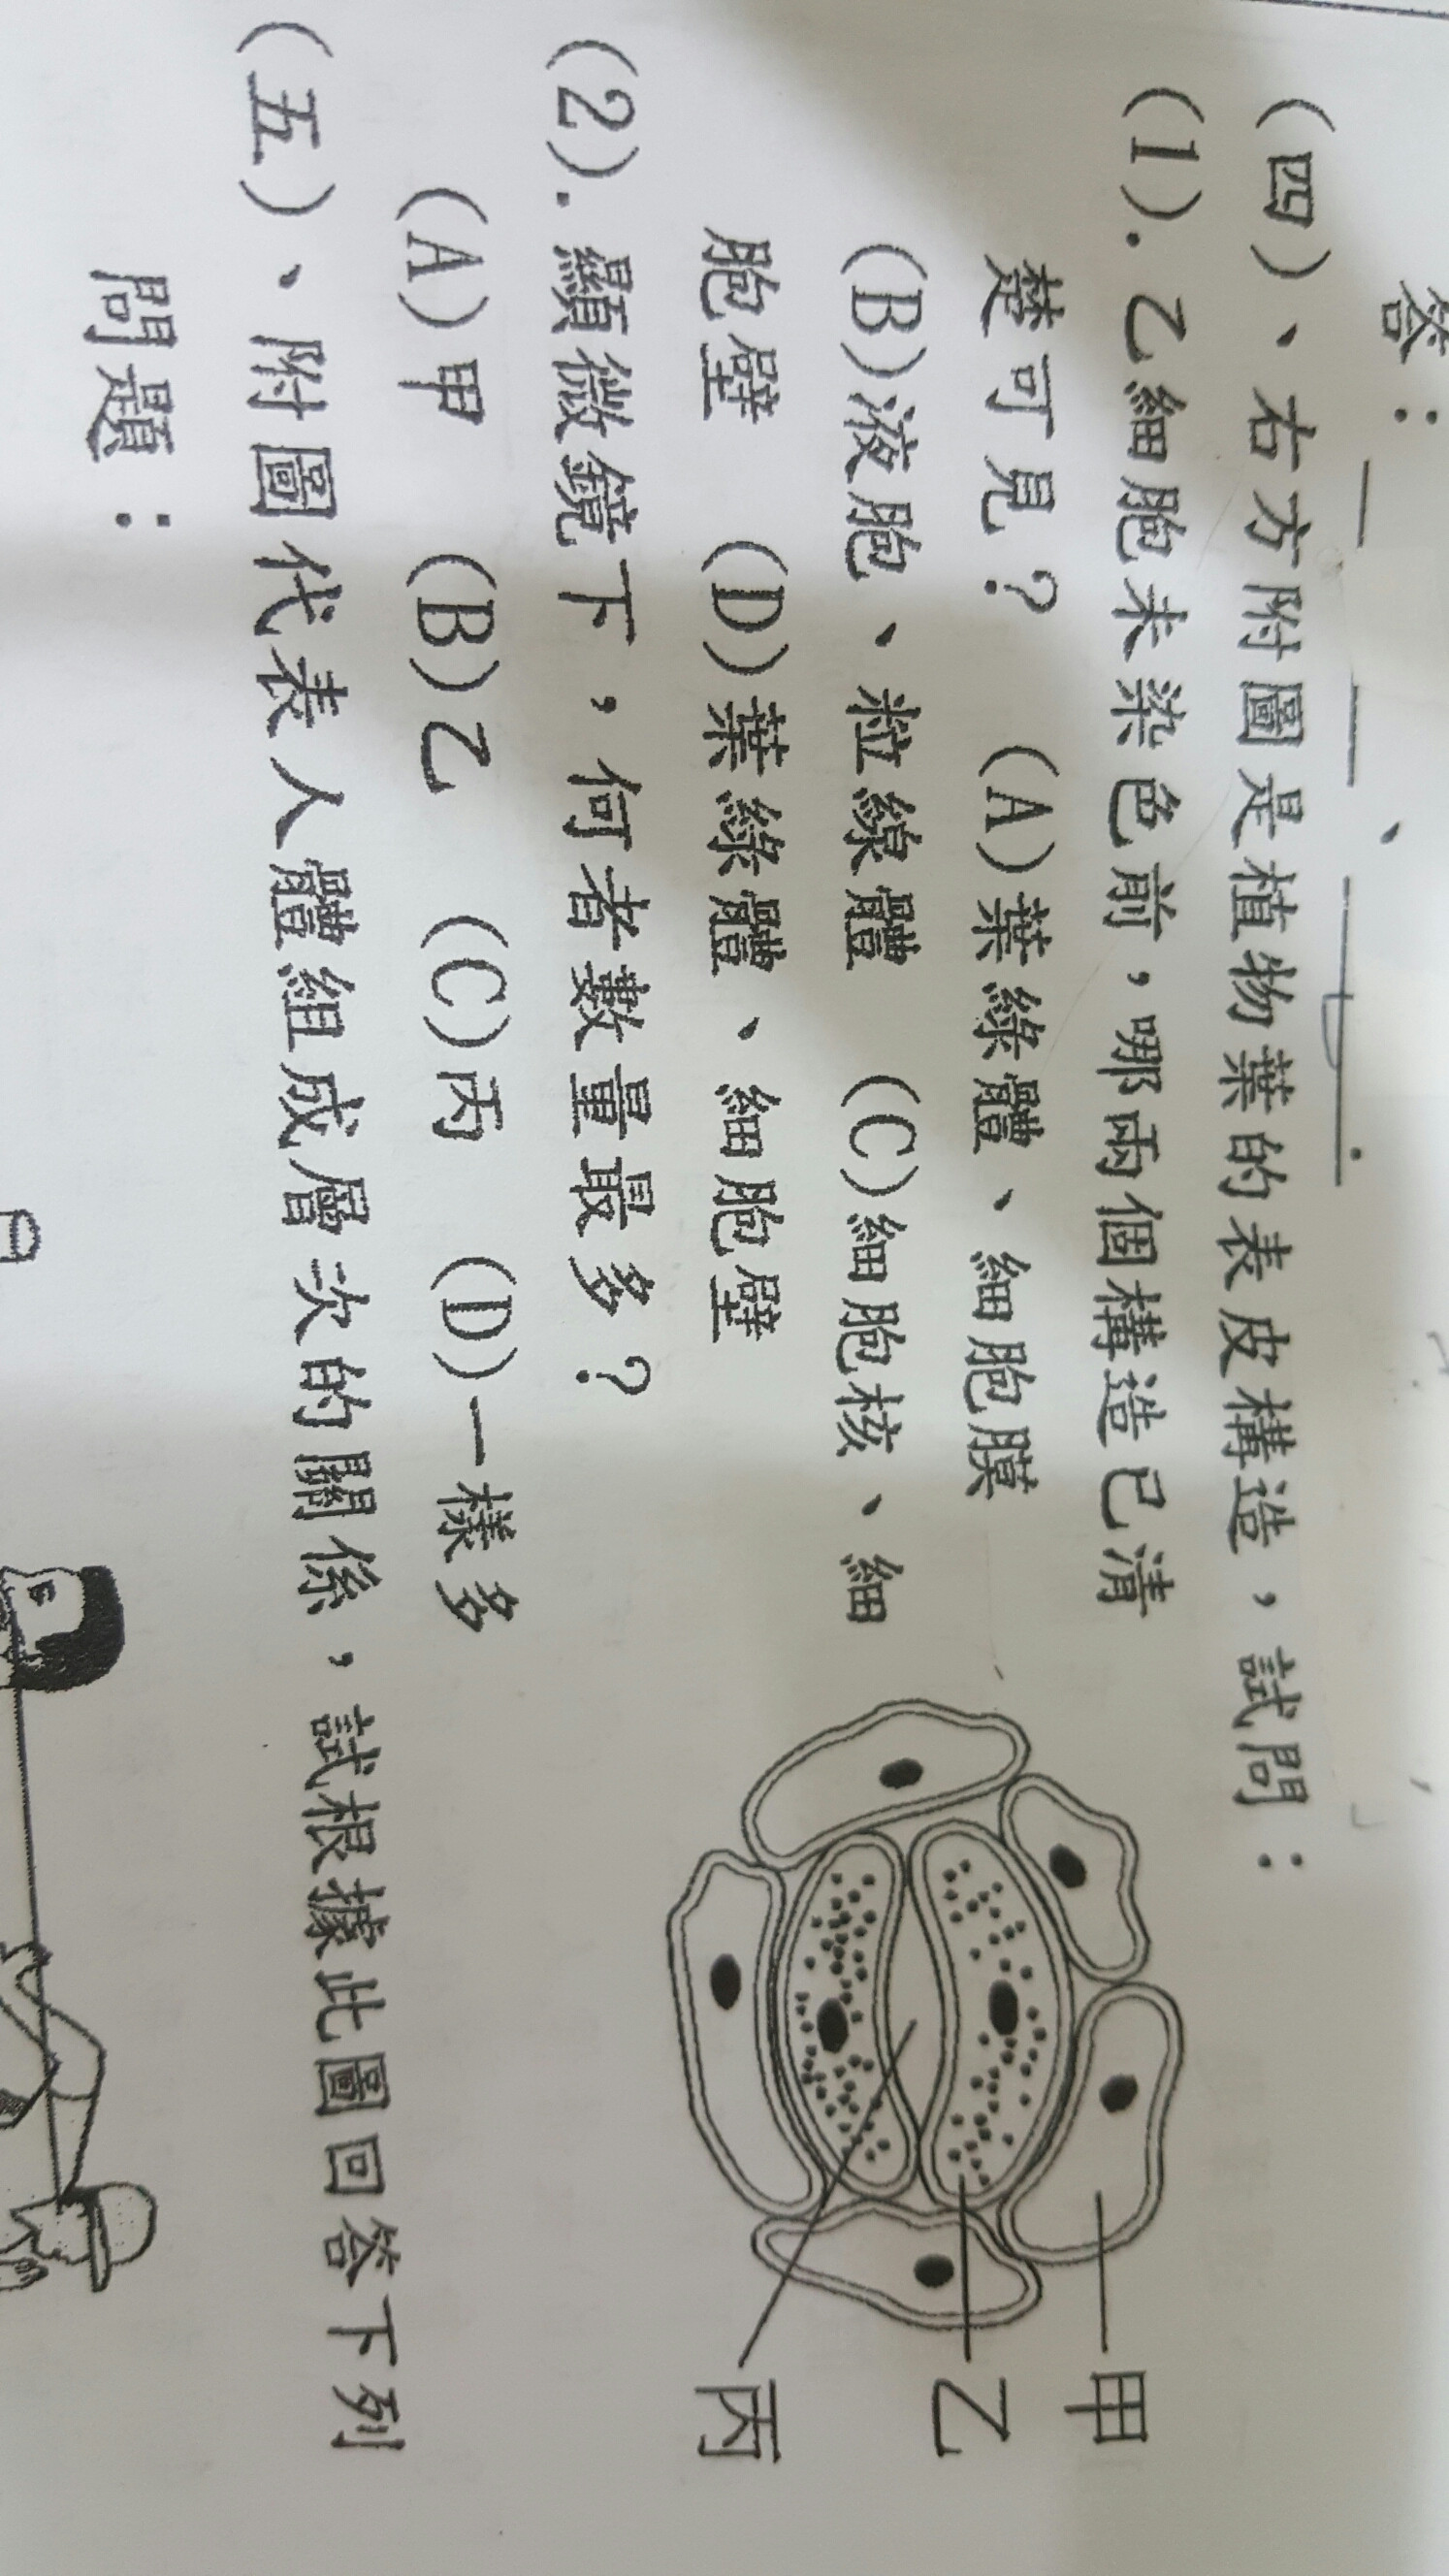 答：
(四)、右方附圖是植物葉的表皮構造，試問：
(1).乙細胞未染色前，哪兩個構造已清
楚可見？ (A)葉綠體、細胞膜
(B)液胞、粒線體 (C)細胞核、細
胞壁 (D)葉綠體、細胞壁
(2).顯微鏡下，何者數量最多？
(A)甲 (B)乙 (C)丙 (D)一樣多
甲
乙
丙
(五)、附圖代表人體組成層次的關係，試根據此圖回答下列
問題：